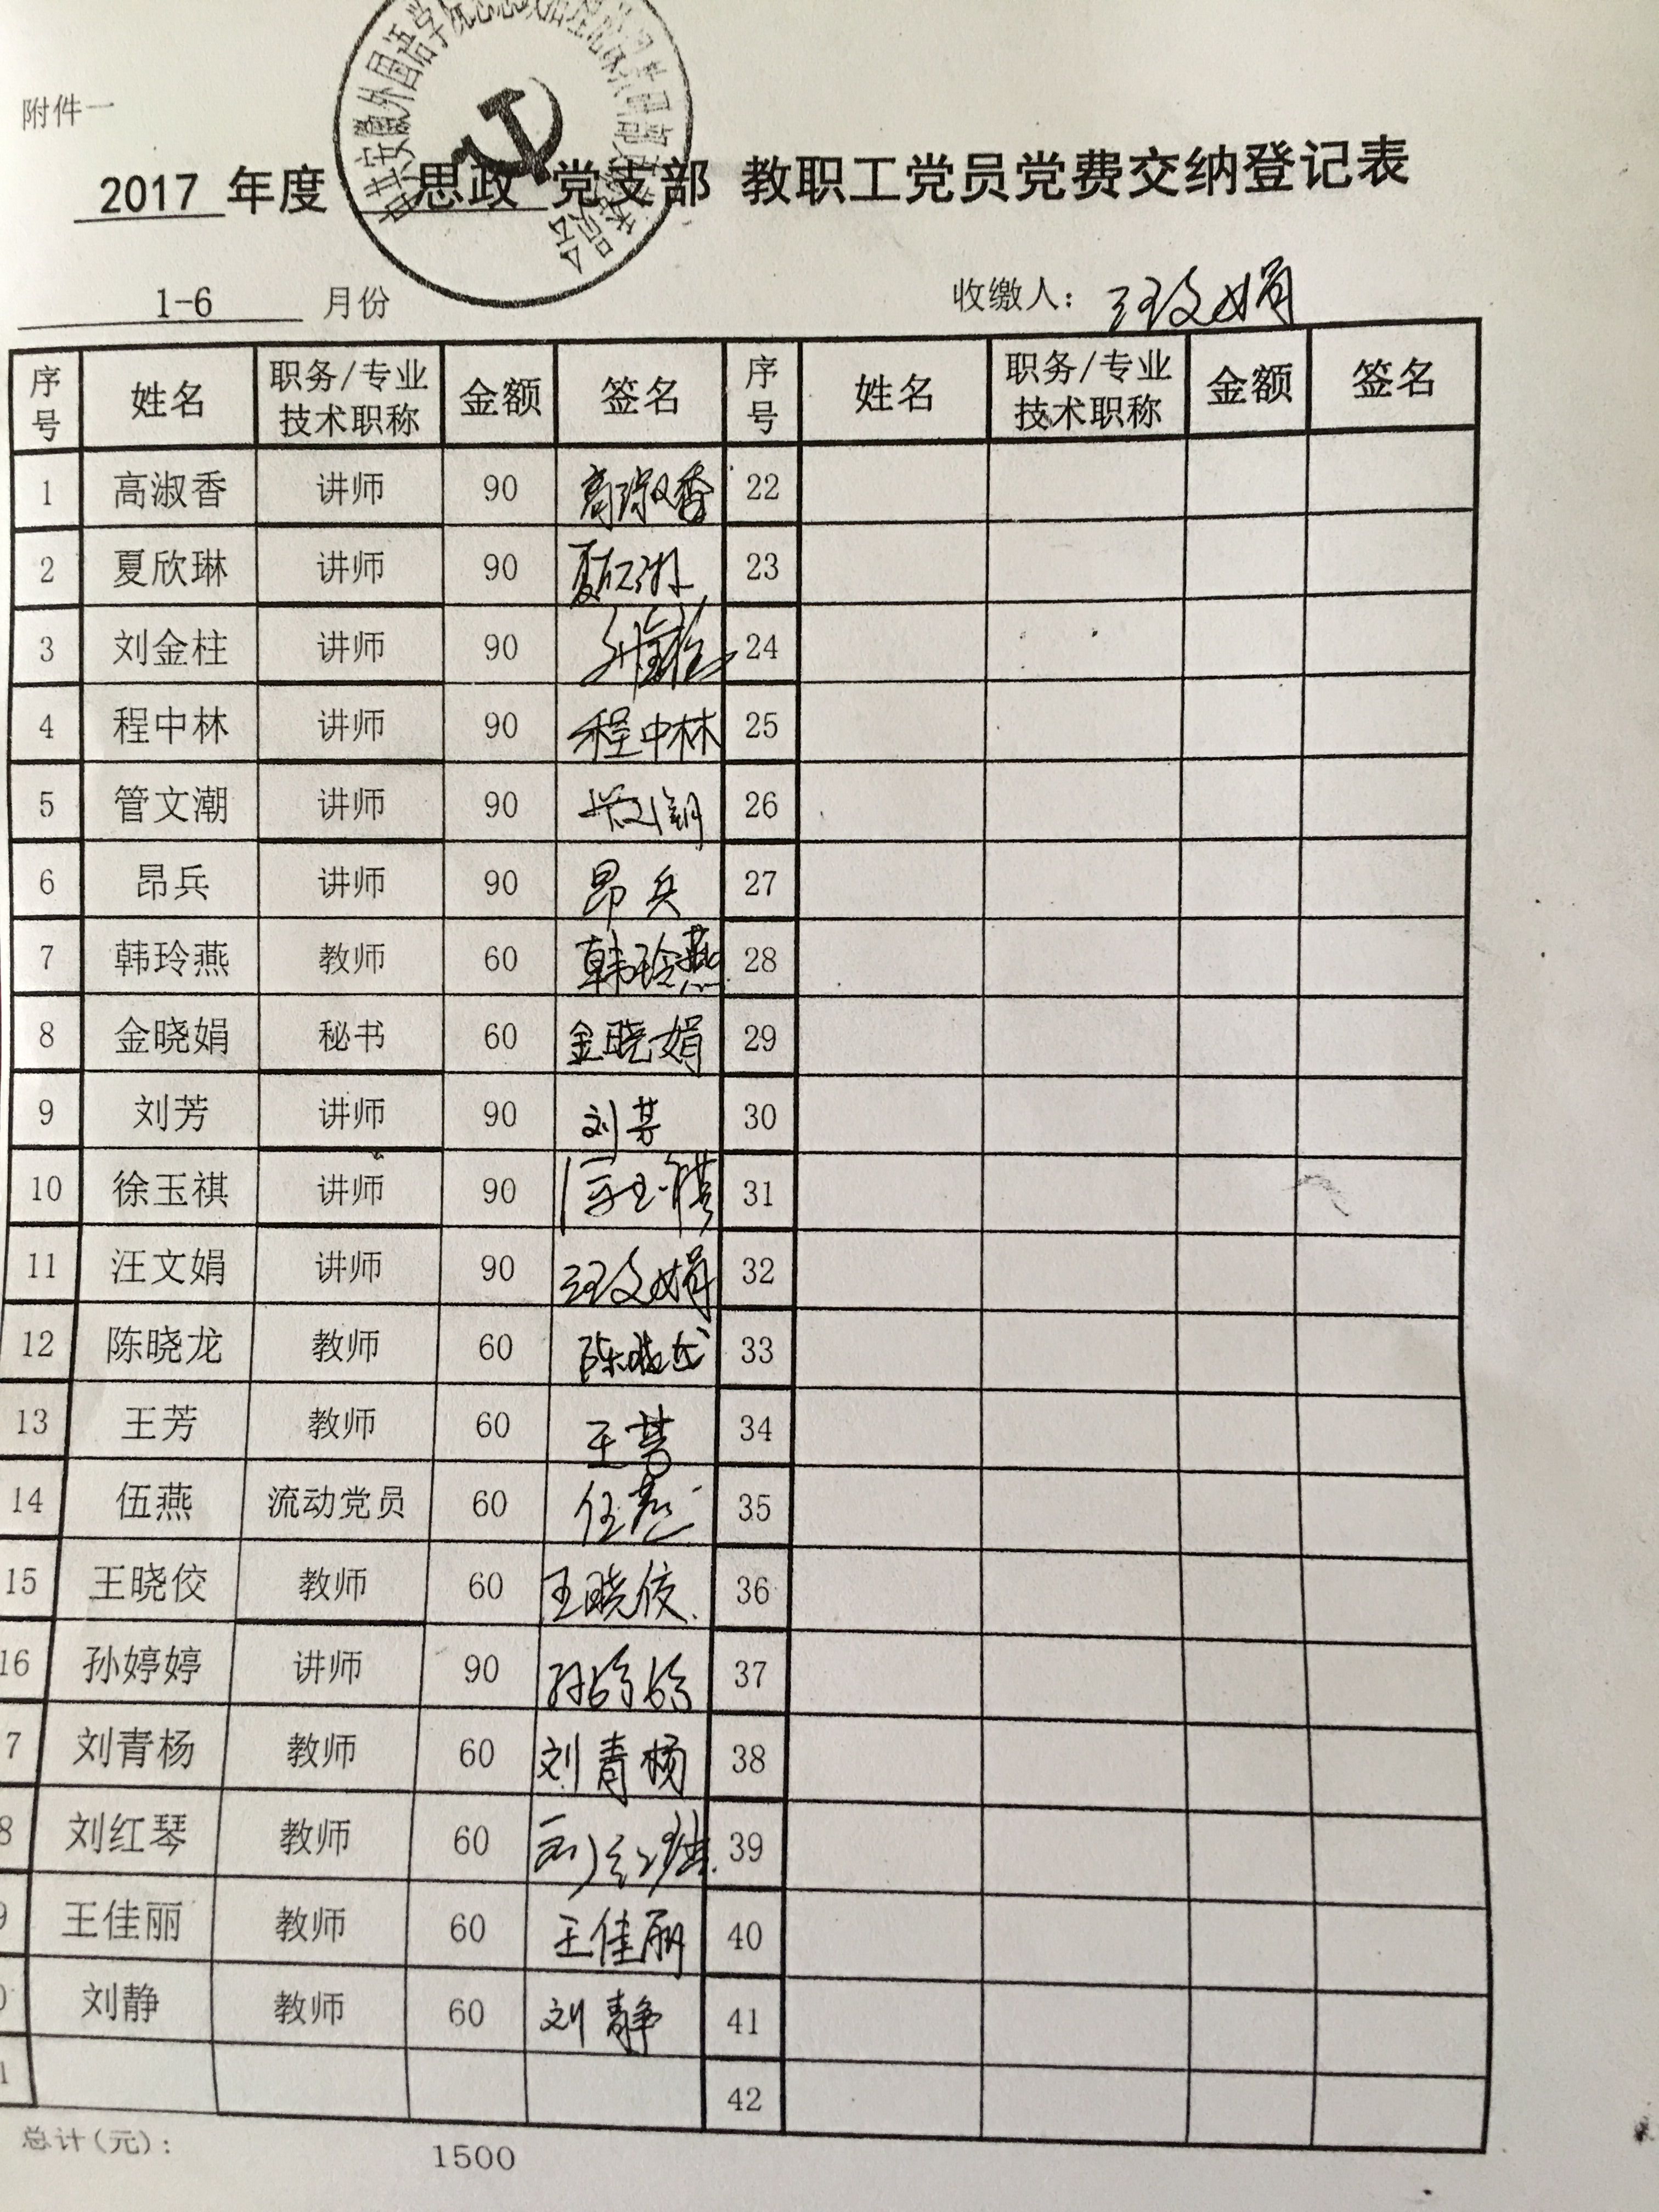 附件一
2017 年度 思政 党支部 教职工党员党费交纳登记表
1-6 月份 收缴人： 汪文娟
序号 姓名 职务/专业技术职称 金额 签名 序号 姓名 职务/专业技术职称 金额 签名
1 高淑香 讲师 90 高淑香 22
2 夏欣琳 讲师 90 夏欣琳 23
3 刘金柱 讲师 90 刘金柱 24
4 程中林 讲师 90 程中林 25
5 管文潮 讲师 90 管文潮 26
6 昂兵 讲师 90 昂兵 27
7 韩玲燕 教师 60 韩玲燕 28
8 金晓娟 秘书 60 金晓娟 29
9 刘芳 讲师 90 刘芳 30
10 徐玉祺 讲师 90 徐玉祺 31
11 汪文娟 讲师 90 汪文娟 32
12 陈晓龙 教师 60 陈晓龙 33
13 王芳 教师 60 王芳 34
14 伍燕 流动党员 60 伍燕 35
15 王晓佼 教师 60 王晓佼 36
16 孙婷婷 讲师 90 孙婷婷 37
7 刘青杨 教师 60 刘青杨 38
8 刘红琴 教师 60 刘红琴 39
9 王佳丽 教师 60 王佳丽 40
0 刘静 教师 60 刘静 41
1 42
总计(元)： 1500